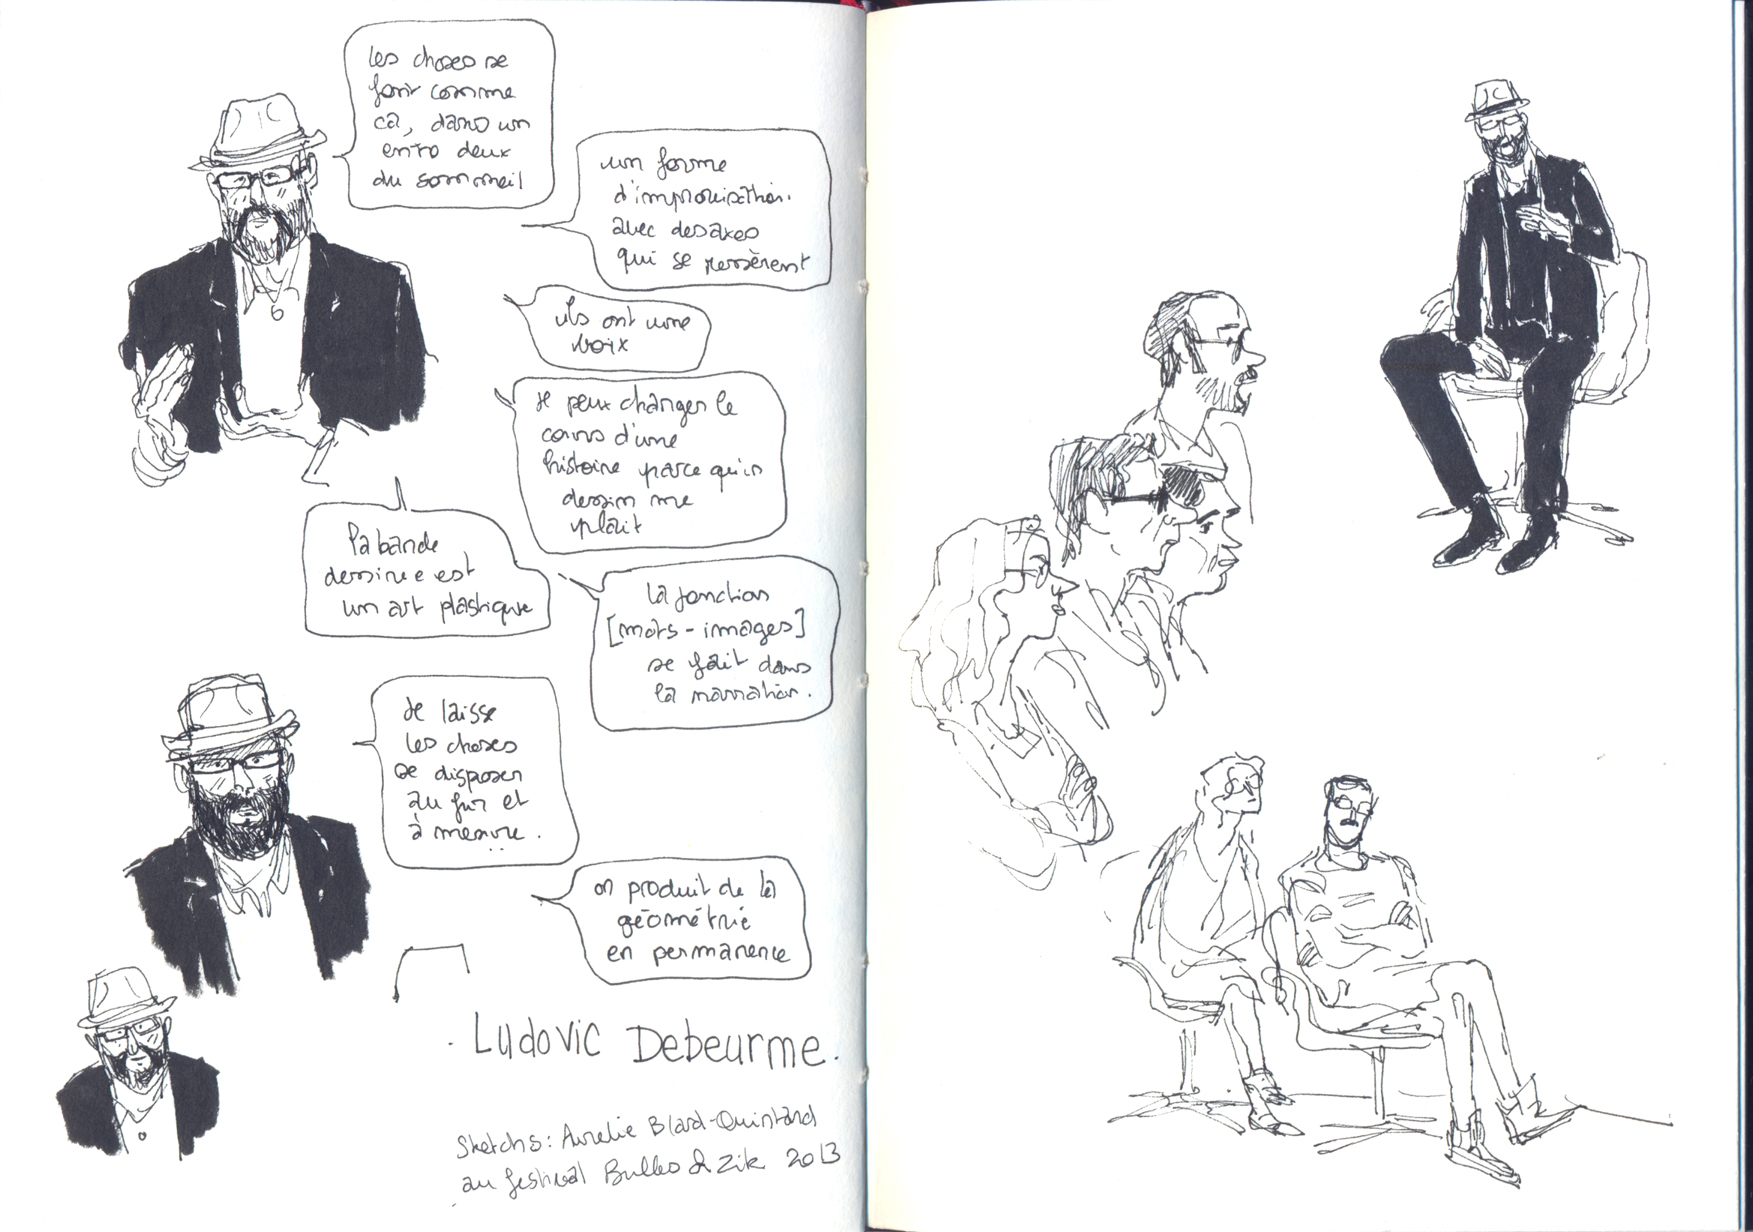 les choses se
font comme
ça, dans un
entre deux
du sommeil
un forme
d'improvisation.
avec des axes
qui se resserent
ils ont une
voix
Je peux changer le
cours d'une
histoire parce qu'un
dessin me
plait
la bande
dessinée est
un art plastique
la fonction
[mots - images]
se fait dans
la narration.
Je laisse
les choses
se disposer
au fur et
à mesure.
on produit de la
géométrie
en permanence
Ludovic Debeurme.
Sketchs: Aurelie Blard-Quintard
au festival Bulles & Zik 2013